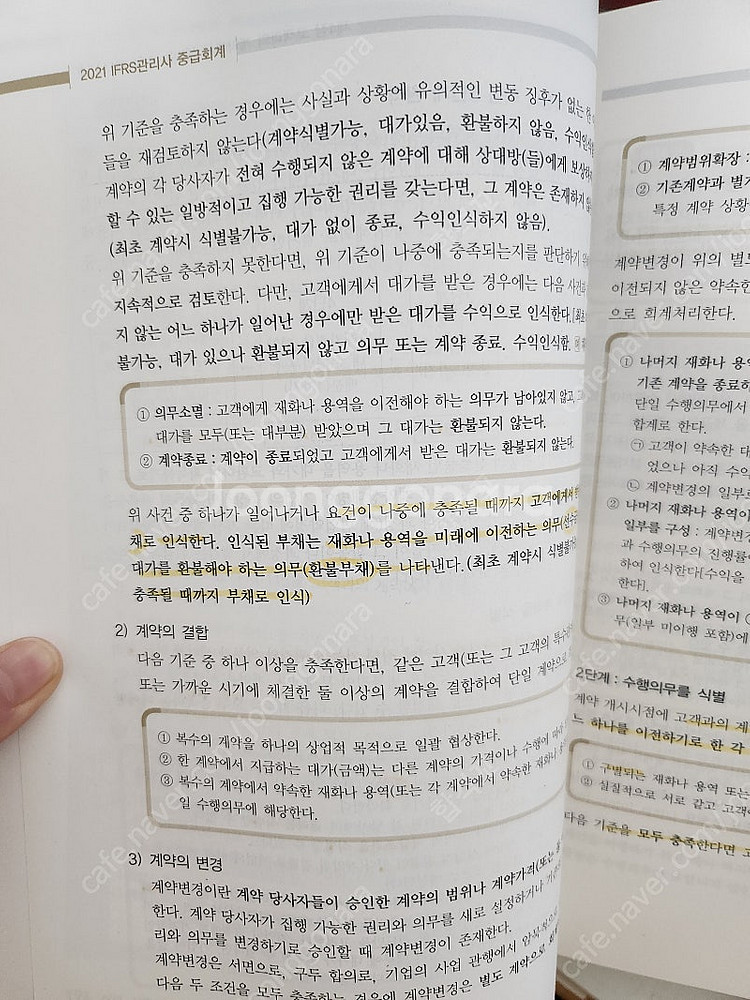 2021 IFRS관리사 중급회계
위 기준을 충족하는 경우에는 사실과 상황에 유의적인 변동 징후가 없는 한
들을 재검토하지 않는다(계약식별가능, 대가있음, 환불하지 않음, 수익인식
계약의 각 당사자가 전혀 수행되지 않은 계약에 대해 상대방(들)에게 보상하
할 수 있는 일방적이고 집행 가능한 권리를 갖는다면, 그 계약은 존재하지
(최초 계약시 식별불가능, 대가 없이 종료, 수익인식하지 않음).
위 기준을 충족하지 못한다면, 위 기준이 나중에 충족되는지를 판단하기
지속적으로 검토한다. 다만, 고객에게서 대가를 받은 경우에는 다음 사건
지 않는 어느 하나가 일어난 경우에만 받은 대가를 수익으로 인식한다.
불가능, 대가 있으나 환불되지 않고 의무 또는 계약 종료. 수익인식함.
① 의무소멸 : 고객에게 재화나 용역을 이전해야 하는 의무가 남아있지 않고,
대가를 모두(또는 대부분) 받았으며 그 대가는 환불되지 않는다.
② 계약종료 : 계약이 종료되었고 고객에게서 받은 대가는 환불되지 않는다.
위 사건 중 하나가 일어나거나 요건이 나중이 충족될 때까지 고객에게서
채로 인식한다. 인식된 부채는 재화나 용역을 미래에 이전하는 의무(선수
대가를 환불해야 하는 의무(환불부채)를 나타낸다.(최초 계약시 식별불가
충족될 때까지 부채로 인식)
2) 계약의 결합
다음 기준 중 하나 이상을 충족한다면, 같은 고객(또는 그 고객의 특수
또는 가까운 시기에 체결한 둘 이상의 계약을 결합하여 단일 계약으로
① 복수의 계약을 하나의 상업적 목적으로 일괄 협상한다.
② 한 계약에서 지급하는 대가(금액)는 다른 계약의 가격이나 수행에 따라
③ 복수의 계약에서 약속한 재화나 용역(또는 각 계약에서 약속한 재화나
일 수행의무에 해당한다.
3) 계약의 변경
계약변경이란 계약 당사자들이 승인한 계약의 범위나 계약가격(또는
한다. 계약 당사자가 집행 가능한 권리와 의무를 새로 설정하거나
리와 의무를 변경하기로 승인할 때 계약변경이 존재한다.
계약변경은 서면으로, 구두 합의로, 기업의 사업 관행에서
다음 두 조건을 모두 충족하는 경우에 계약변경은 별도 계약으로
① 계약범위확장 :
② 기존계약과 별
특정 계약 상황
계약변경이 위의 별
이전되지 않은 약속한
으로 회계처리한다.
① 나머지 재화나 용역
기존 계약을 종료하
단일 수행의무에서
합계로 한다.
㉠ 고객이 약속한 대
었으나 아직 수익
㉡ 계약변경의 일부로
② 나머지 재화나 용역이
일부를 구성 : 계약변경
과 수행의무의 진행률이
하여 인식한다[수익을
한다].
③ 나머지 재화나 용역이
무(일부 미이행 포함)에
2단계 : 수행의무를 식별
계약 개시시점에 고객과의 계
느 하나를 이전하기로 한 각
① 구별되는 재화나 용역 또는
② 실질적으로 서로 같고 고객
다음 기준을 모두 충족한다면